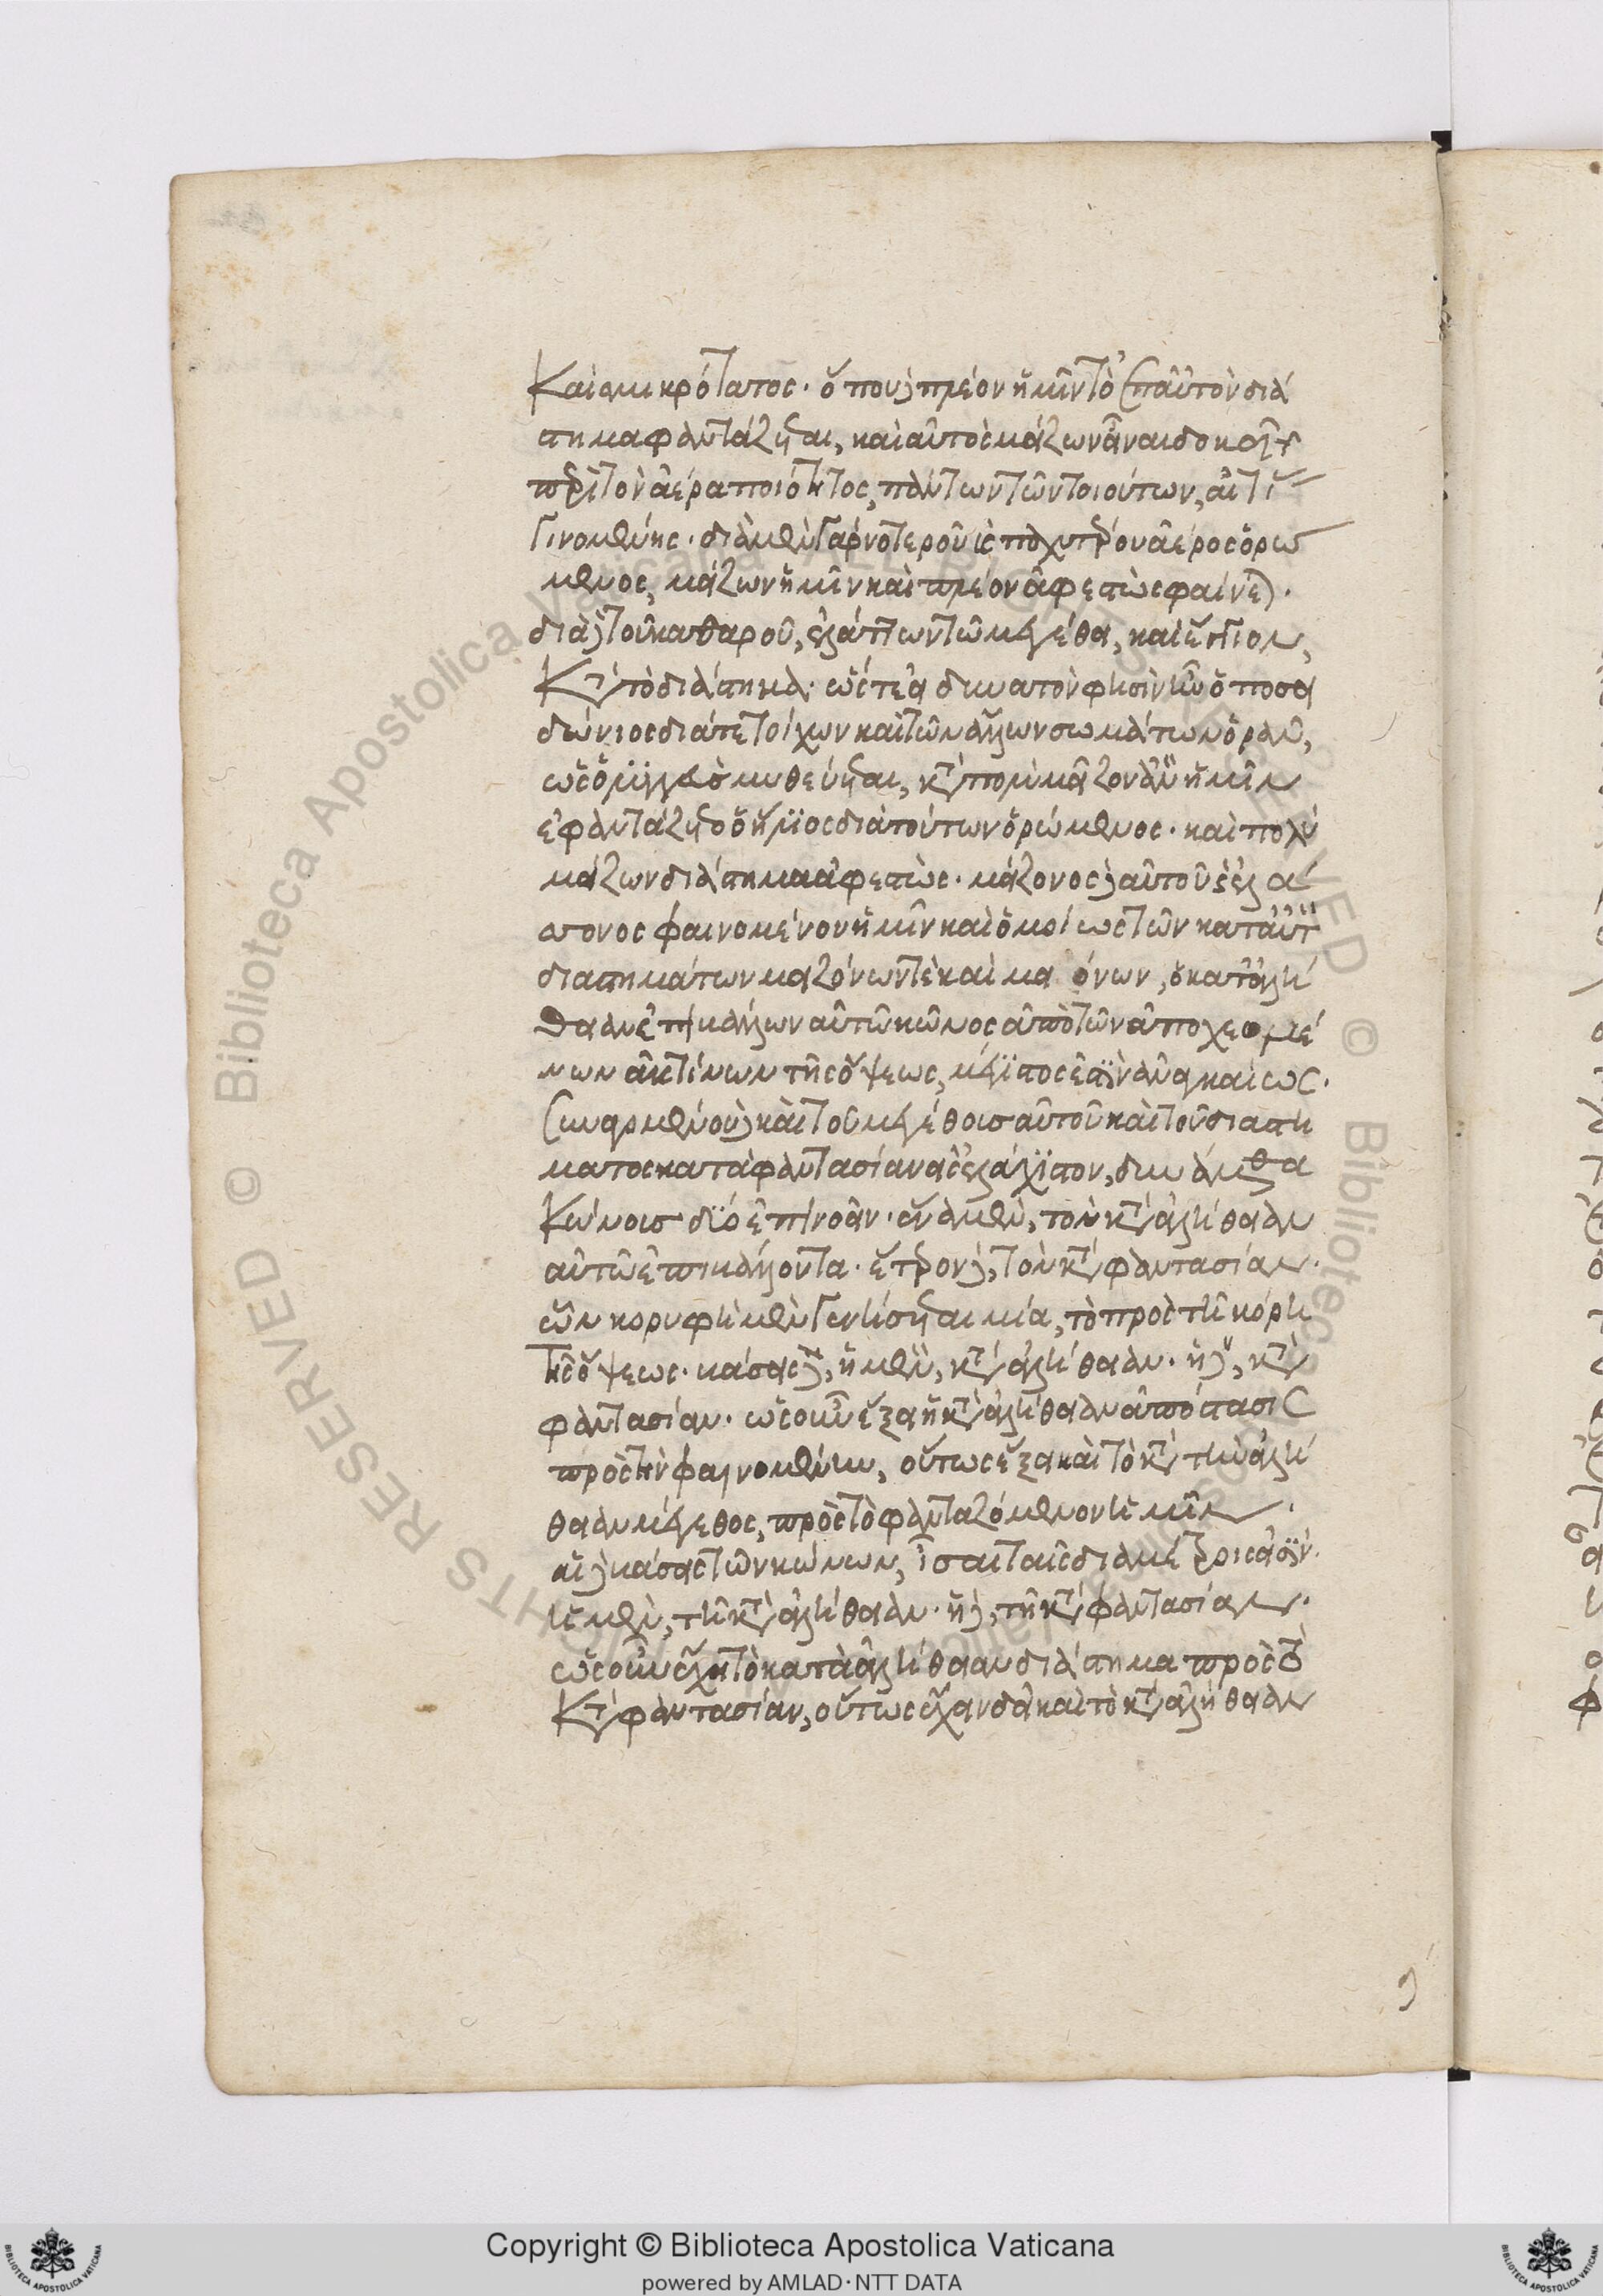 καὶ μικρότατος· ὅπου δὲ πλέον ἡμῖν τὸ ἐπ' αὐτὸν διά
στημα φαντάζεται, καὶ αὐτὸς μείζων εἶναι δοκεῖ τῆς
περὶ τὸν ἀέρα ποιότητος, πάντων τῶν τοιούτων, αἰτί
γινομένης· διὰ μὲν γὰρ νοτεροῦ καὶ παχυτέρου ἀέρος ὁρώ
μενος, μείζων ἡμῖν καὶ πλέον ἀφεστὼς φαίνεται·
διὰ δὲ τοῦ καθαροῦ, ἐλάττων τῷ μεγέθει, καὶ ἔγγιον,
κατὰ τὸ διάστημα· ὥστε εἰ δυνατὸν φησὶν ἦν ὁ Ποσει
δώνιος διά τε τοίχων καὶ τῶν ἄλλων σωμάτων ὁρᾶν,
ὡς ὁ Λυγγεὺς μυθεύεται, κατὰ πολὺ μείζον ἂν ἡμῖν
ἐφαντάζετο ὁ ἥλιος διὰ τούτων ὁρώμενος· καὶ πολὺ
μείζων διάστημα ἀφεστὼς· μείζονος δὲ αὐτοῦ καὶ ἐλάτ
τονος φαινομένου ἡμῖν καὶ ὁμοίως τῶν κατ' αὐτ
διαστημάτων μειζόνων τε καὶ μει όνων, ὁ κατ' ἀλή
θειαν ἐπιβάλλων αὐτῷ κῶνος ἀπὸ τῶν ἀποχεομέ
νων ἀκτίνων τῆς ὄψεως, μέγιστος ἐστὶν ἀνάγκαίως·
συναιρομένου δὲ καὶ τοῦ μεγέθους αὐτοῦ καὶ τοῦ διαστή
ματος κατὰ φαντασίαν εἰς ἐλάχιστον, δυνάμεθα
κώνους δύο ἐπινοεῖν· ἕνα μὲν, τὸν κατ' ἀλήθειαν
αὐτῷ ἐπιβάλλοντα· ἕτερον δὲ, τὸν κατὰ φαντασίαν·
ὧν κορυφὴ μὲν γενήσεται μία, τὸ πρὸς τῇ κόρῃ
τῆς ὄψεως· βάσεις δὲ, ἡ μὲν, κατ' ἀλήθειαν· ἡ δὲ, κατὰ
φαντασίαν· ὡς οὖν ἕξει ἡ κατ' ἀλήθειαν ἀπόστασις
πρὸς τὴν φαινομένην, οὕτως ἕξει καὶ τὸ κατὰ τὴν ἀλή
θειαν μέγεθος, πρὸς τὸ φανταζόμενον ἡμῖν·
αἱ δὲ βάσεις τῶν κώνων, ἴσαι ταῖς διαμέτροις εἰσὶν·
ἡ μὲν, τῇ κατ' ἀλήθειαν· ἡ δὲ, τῇ κατὰ φαντασίαν·
ὡς οὖν ἔχει τὸ κατὰ ἀλήθειαν διάστημα πρὸς τὸ
κατὰ φαντασίαν, οὕτως ἔχειν δεῖ καὶ τὸ κατ' ἀλήθειαν
Copyright © Biblioteca Apostolica Vaticana
powered by AMLAD·NTT DATA